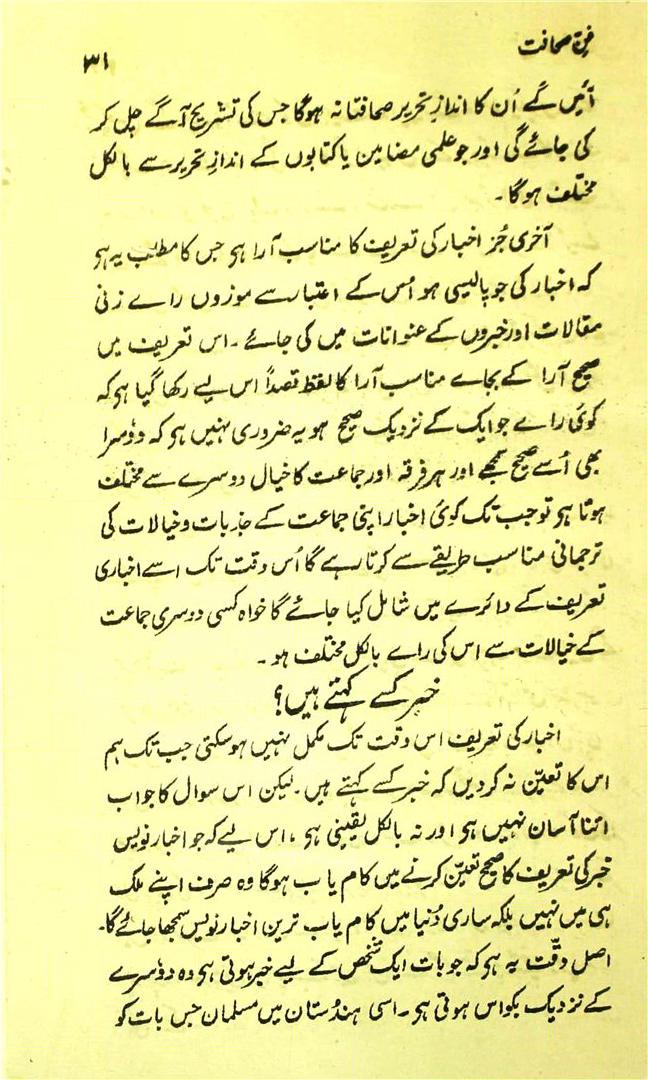 فنِ صحافت
۳۱
آئیں گے اُن کا اندازِ تحریر صحافتانہ ہوگا جس کی تشریح آگے چل کر
کی جائے گی اور جو علمی مضامین یا کتابوں کے اندازِ تحریر سے بالکل
مختلف ہوگا۔
آخری جُز اخبار کی تعریف کا مناسب آرا ہی جس کا مطلب یہ ہی
کہ اخبار کی جو پالیسی ہو اُس کے اعتبار سے موزوں راے زنی
مقالات اور خبروں کے عنوانات میں کی جائے۔ اس تعریف میں
صحیح آرا کے بجاے مناسب آرا کا لفظ قصداً اس لیے رکھا گیا ہی کہ
کوئی راے جو ایک کے نزدیک صحیح ہو یہ ضروری نہیں ہی کہ دوٗسرا
بھی اُسے صحیح سمجھے اور ہر فرقہ اور جماعت کا خیال دوسرے سے مختلف
ہوتا ہی تو جب تک کوئی اخبار اپنی جماعت کے جذبات و خیالات کی
ترجمانی مناسب طریقے سے کرتا رہے گا اُس وقت تک اسے اخباری
تعریف کے دائرے میں شامل کیا جائے گا خواہ کسی دوسری جماعت
کے خیالات سے اس کی راے بالکل مختلف ہو۔
خبر کسے کہتے ہیں؟
اخبار کی تعریف اس وقت تک مکمل نہیں ہوسکتی جب تک ہم
اس کا تعیّن نہ کردیں کہ خبر کسے کہتے ہیں۔ لیکن اس سوال کا جواب
اتنا آسان نہیں ہی اور نہ بالکل یقینی ہی، اس لیے کہ جو اخبار نویس
خبر کی تعریف کا صحیح تعیّن کرنے میں کام یاب ہوگا وہ صرف اپنے ملک
ہی میں نہیں بلکہ ساری دُنیا میں کام یاب ترین اخبار نویس سمجھا جائے گا۔
اصل دقّت یہ ہی کہ جو بات ایک شخص کے لیے خبر ہوتی ہی وہ دوٗسرے
کے نزدیک بکواس ہوتی ہی۔ اسی ہندُستان میں مسلمان جس بات کو